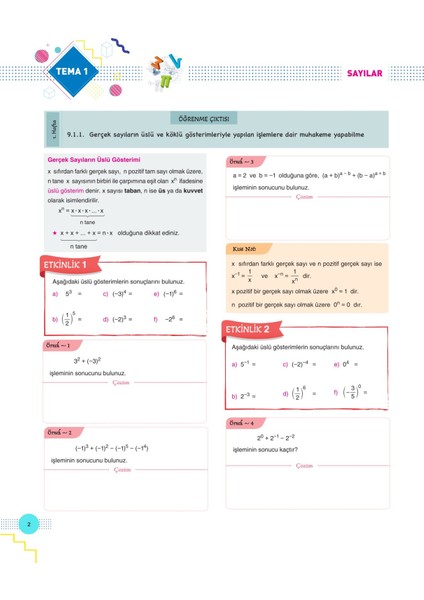 TEMA 1
SAYILAR
1. Hafta
ÖĞRENME ÇIKTISI
9.1.1. Gerçek sayıların üslü ve köklü gösterimleriyle yapılan işlemlere dair muhakeme yapabilme
Gerçek Sayıların Üslü Gösterimi
x sıfırdan farklı gerçek sayı, n pozitif tam sayı olmak üzere,
n tane x sayısının birbiri ile çarpımına eşit olan xⁿ ifadesine
üslü gösterim denir. x sayısı taban, n ise üs ya da kuvvet
olarak isimlendirilir.
xⁿ = x · x · x · ... · x
n tane
★ x + x + ... + x = n · x olduğuna dikkat ediniz.
n tane
ETKİNLİK 1
Aşağıdaki üslü gösterimlerin sonuçlarını bulunuz.
a) 5³ = c) (–3)⁴ = e) (–1)⁶ =
b) (1/2)⁵ = d) (–2)³ = f) –2⁶ =
Örnek – 1
3² + (–3)²
işleminin sonucunu bulunuz.
Çözüm
Örnek – 2
(–1)³ + (–1)² – (–1)⁵ – (–1⁴)
işleminin sonucunu bulunuz.
Çözüm
Örnek – 3
a = 2 ve b = –1 olduğuna göre, (a + b)ᵃ ⁻ ᵇ + (b – a)ᵃ ⁺ ᵇ
işleminin sonucunu bulunuz.
Çözüm
Kısa Not:
x sıfırdan farklı gerçek sayı ve n pozitif gerçek sayı ise
x⁻¹ = 1/x ve x⁻ⁿ = 1/xⁿ dir.
x pozitif bir gerçek sayı olmak üzere x⁰ = 1 dir.
n pozitif bir gerçek sayı olmak üzere 0ⁿ = 0 dır.
ETKİNLİK 2
Aşağıdaki üslü gösterimlerin sonuçlarını bulunuz.
a) 5⁻¹ = c) (–2)⁻⁴ = e) 0⁴ =
b) 2⁻³ = d) (1/2)⁶ = f) (–3/5)⁰ =
Örnek – 4
2⁰ + 2⁻¹ – 2⁻²
işleminin sonucu kaçtır?
Çözüm
2